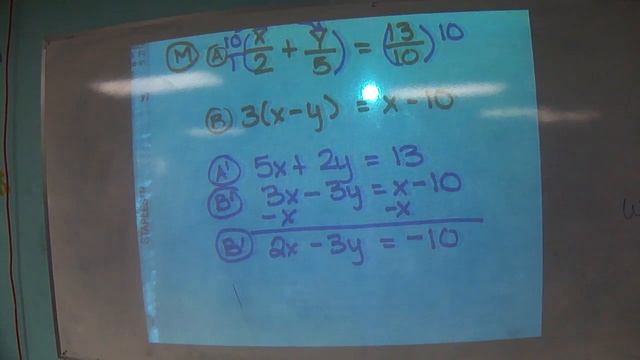 M A 10/1 (x/2 + y/5) = (13/10) 10
B 3(x-y) = x-10
A' 5x + 2y = 13
B" 3x - 3y = x-10
-x -x
B' 2x - 3y = -10
STAPLES